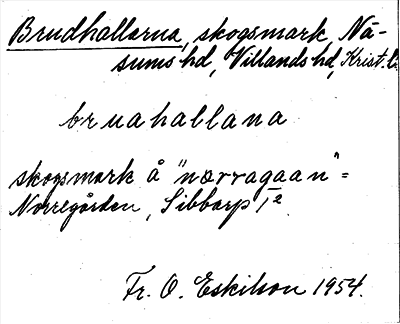 Brudhallarna, skogsmark, Nä-
sums hd, Villands hd, Krist. l.
bruahallana
skogsmark å "nærragaan" =
Norregården, Sibbarp 1²
Fr. O. Eskilson 1954.